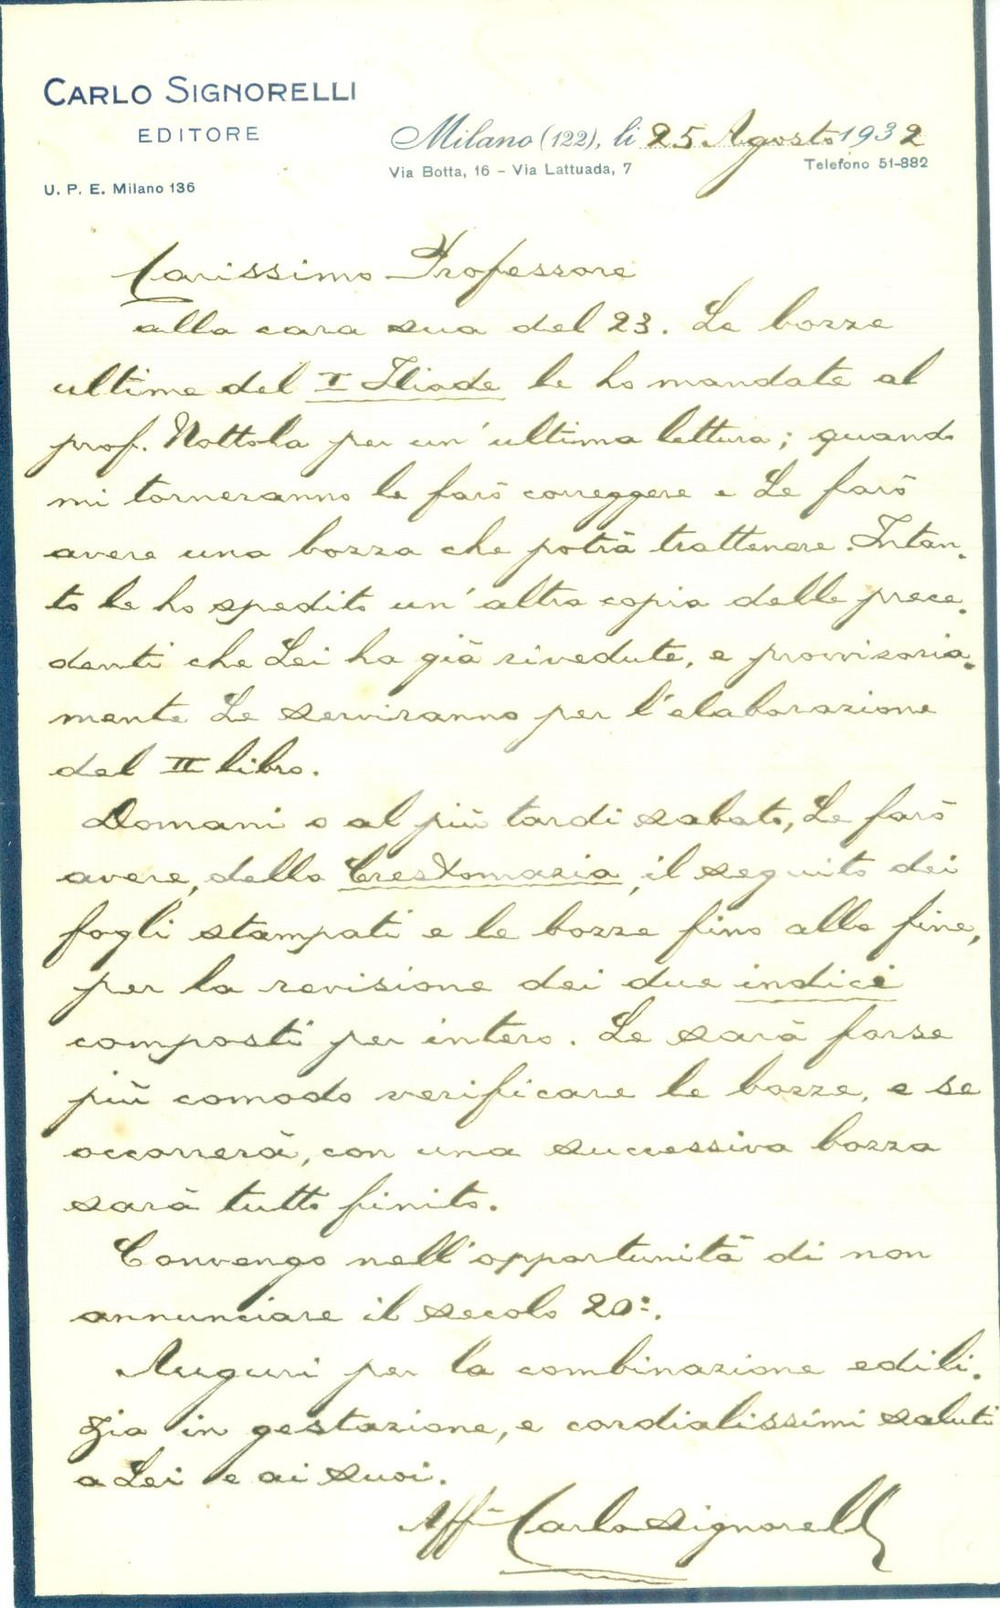 CARLO SIGNORELLI
EDITORE
U. P. E. Milano 136
Milano (122), li 25 Agosto 1932
Via Botta, 16 - Via Lattuada, 7
Telefono 51-882
Carissimo Professore
alla cara sua del 23. Le bozze
ultime del I Iliade le ho mandate al
prof. Nottola per un'ultima lettura; quando
mi torneranno le farò correggere e Le farò
avere una bozza che potrà trattenere. Intan-
to le ho spedito un'altra copia delle prece-
denti che Lei ha già rivedute, e provvisoria-
mente Le serviranno per l'elaborazione
del II libro.
Domani o al più tardi sabato, Le farò
avere, della Crestomazia, il seguito dei
fogli stampati e le bozze fino alla fine,
per la revisione dei due indici
composti per intero. Le sarà forse
più comodo verificare le bozze, e se
occorrerà, con una successiva bozza
sarà tutto finito.
Convengo nell'opportunità di non
annunciare il secolo 20º.
Auguri per la combinazione edili-
zia in gestazione, e cordialissimi saluti
a Lei e ai suoi.
Aff Carlo Signorelli